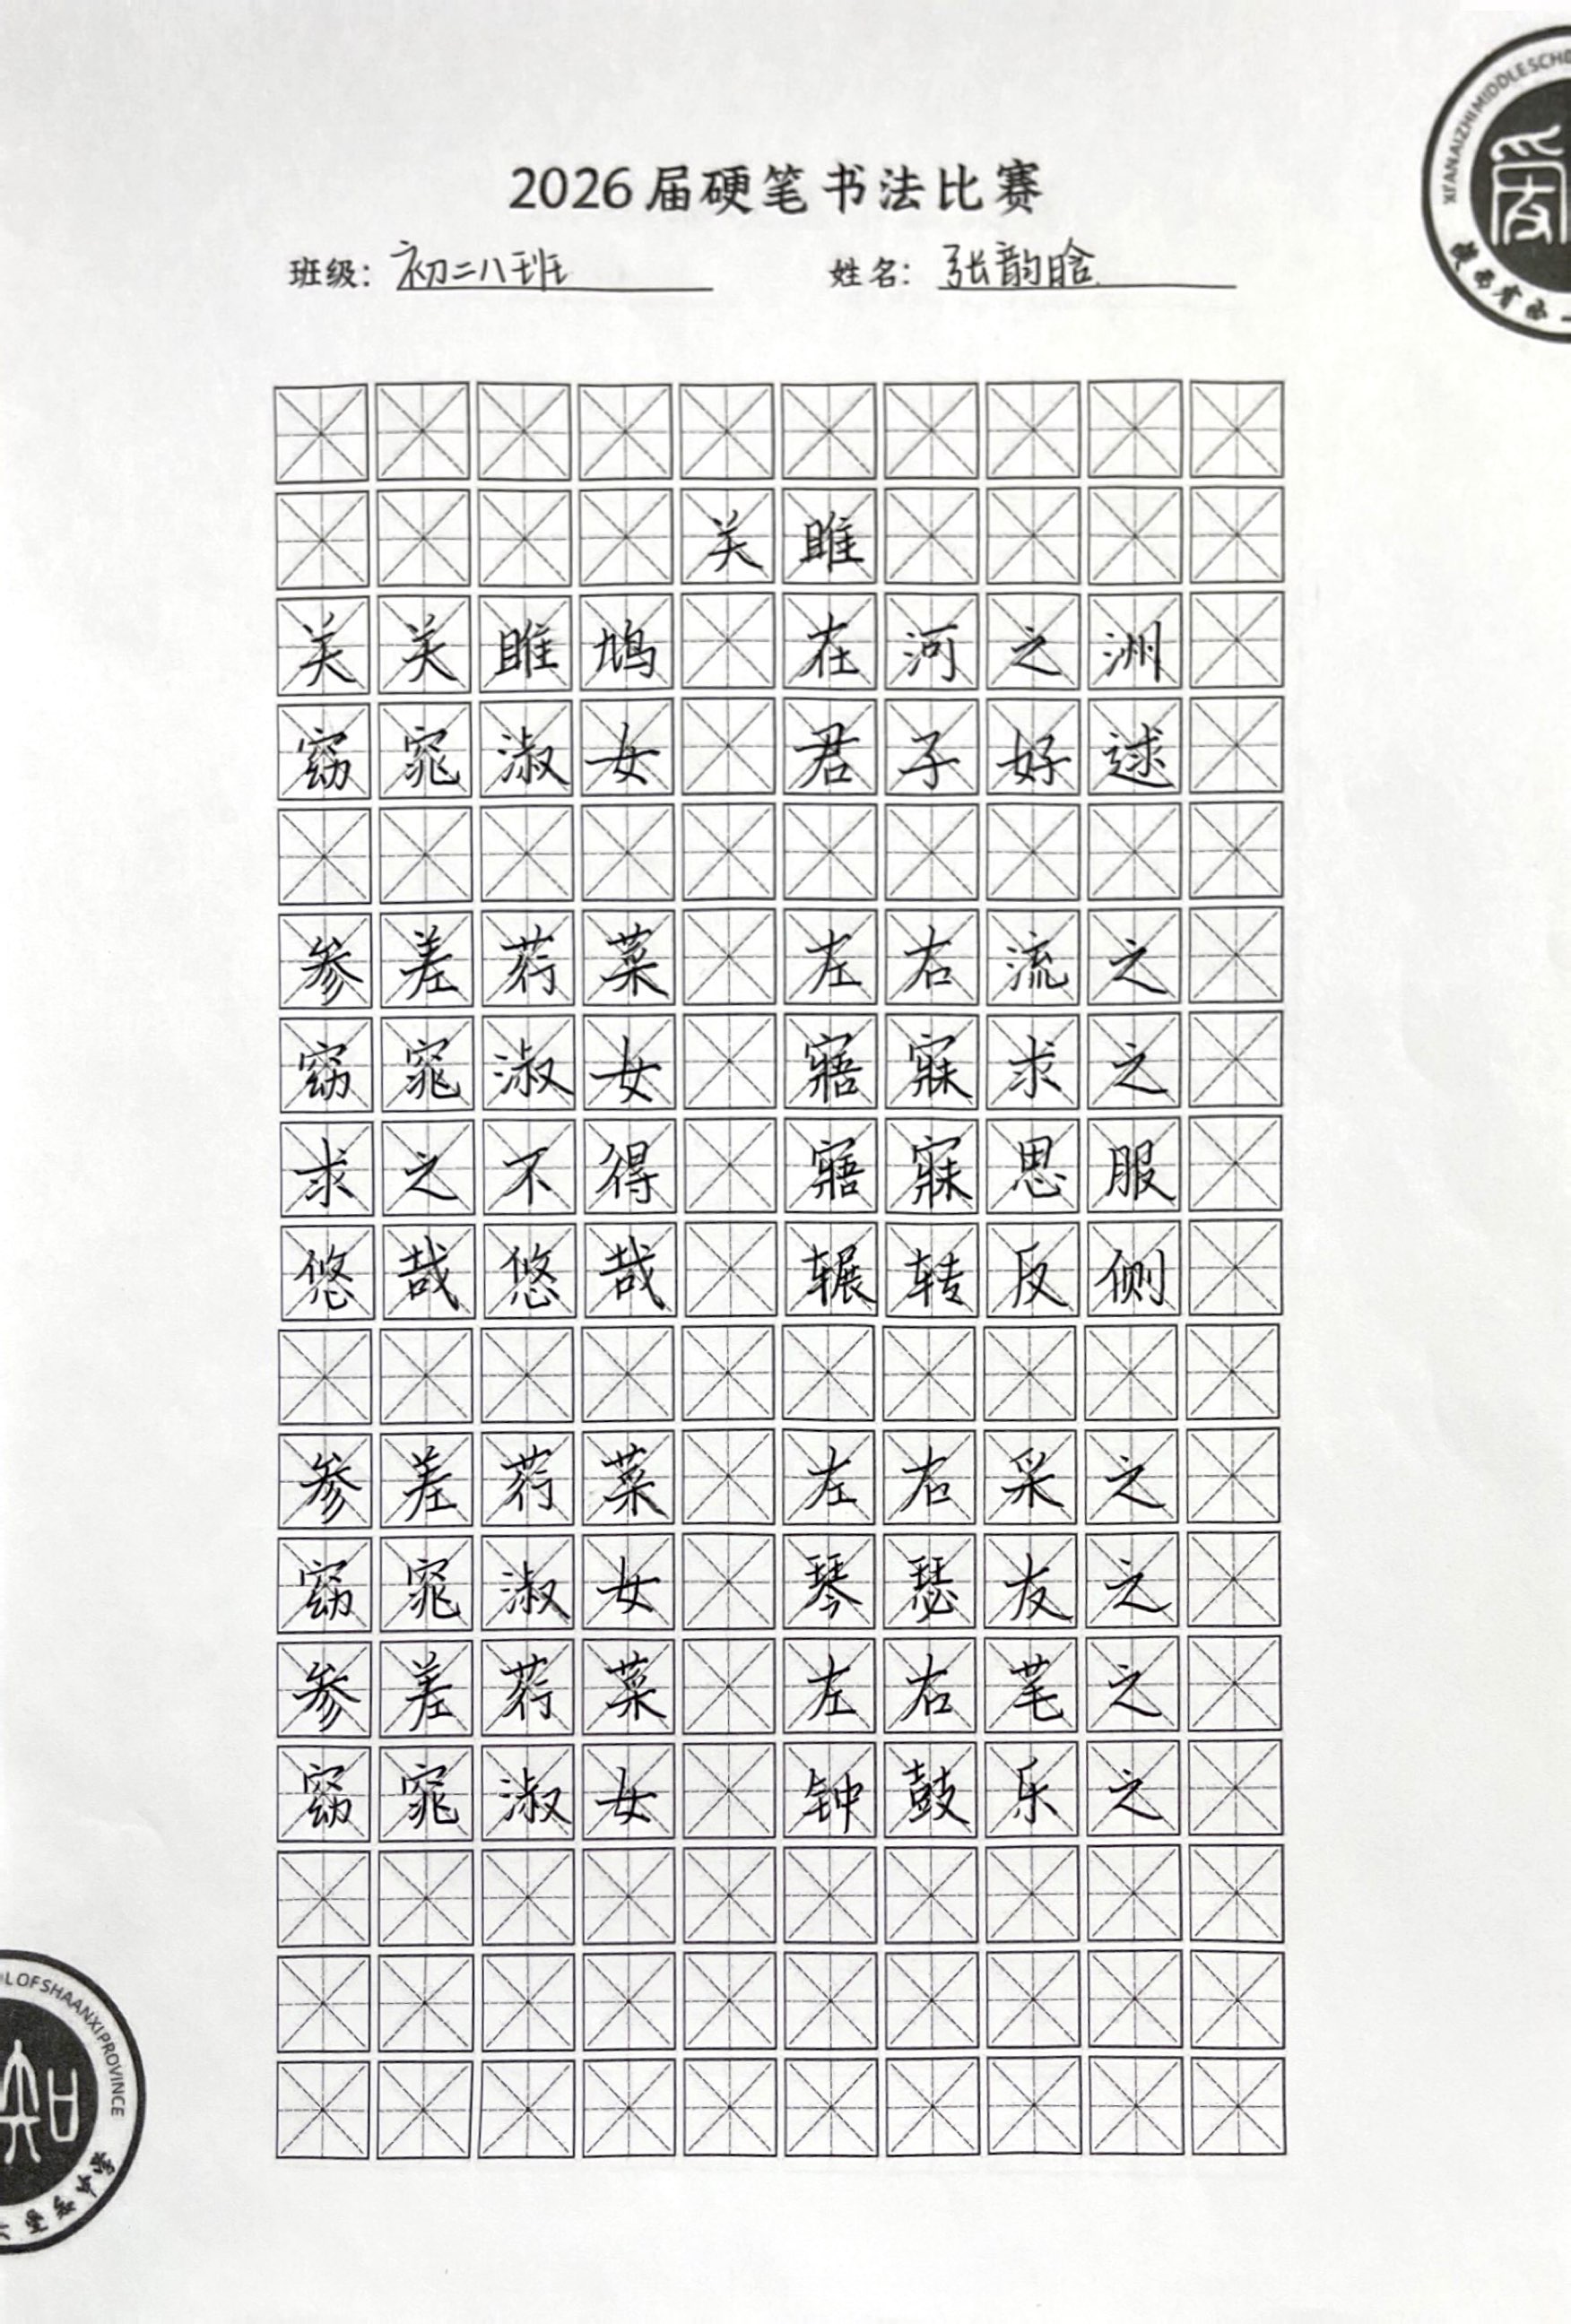 XI'ANAIZHIMIDDLESCHO
陕西省西一
2026届硬笔书法比赛
班级：初二八班 姓名：张韵晗
关雎
关关雎鸠 在河之洲
窈窕淑女 君子好逑
参差荇菜 左右流之
窈窕淑女 寤寐求之
求之不得 寤寐思服
悠哉悠哉 辗转反侧
参差荇菜 左右采之
窈窕淑女 琴瑟友之
参差荇菜 左右芼之
窈窕淑女 钟鼓乐之
OLOFSHAANXIPROVINCE
爱知中学